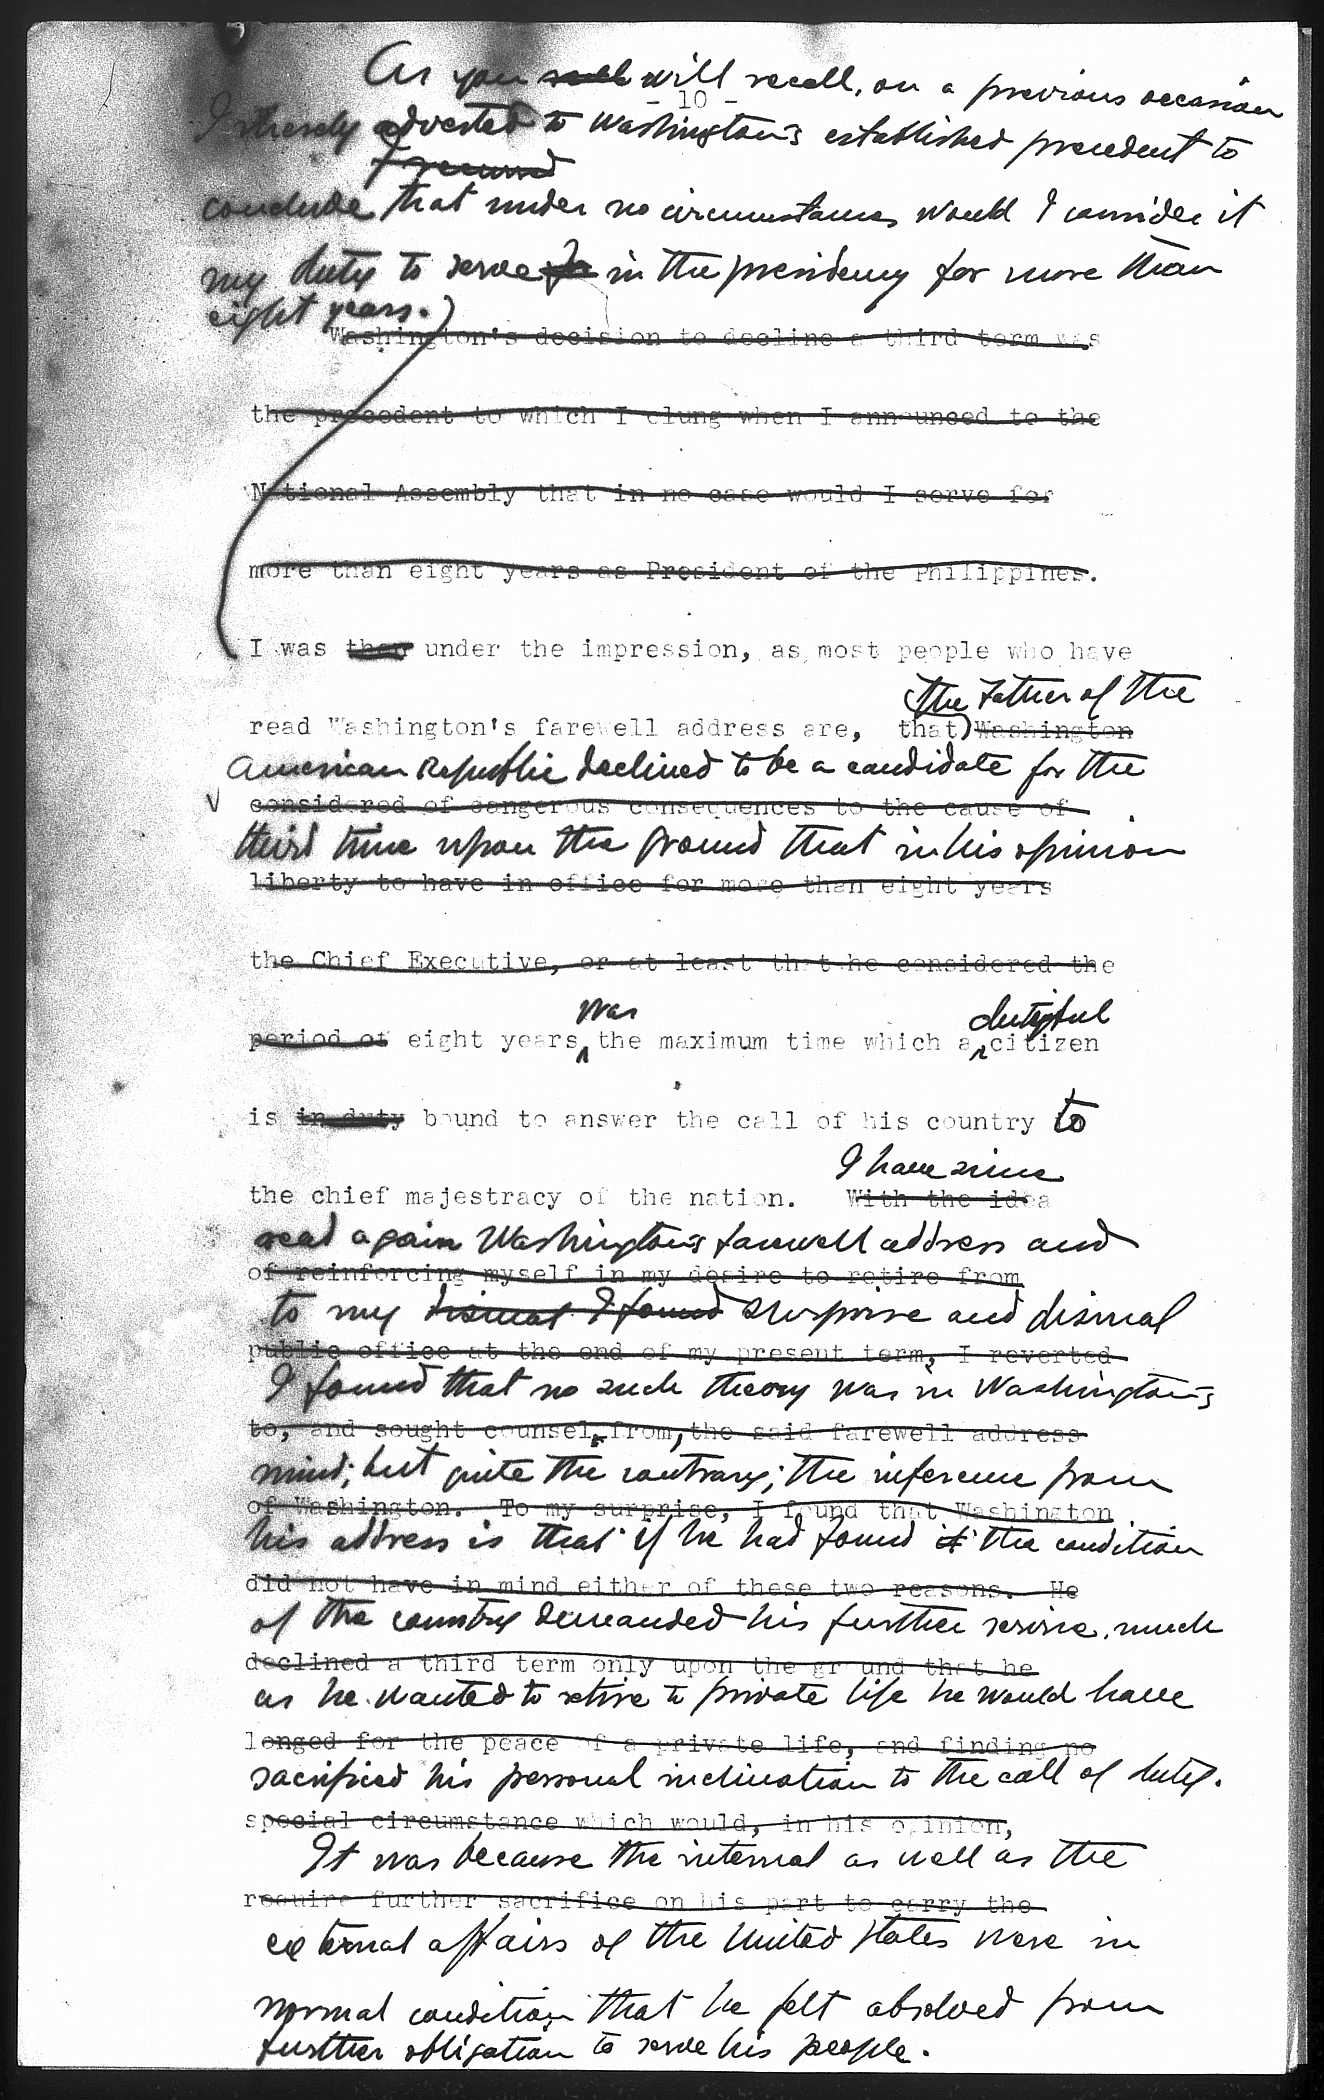 As you will recall, on a previous occasion
- 10 -
I adverted to Washington's established precedent to
I recurred
conclude that under no circumstances would I consider it
my duty to serve in the presidency for more than
eight years.)
Washington's decision to decline a third term was
the precedent to which I clung when I announced to the
National Assembly that in no case would I serve for
more than eight years as President of the Philippines.
I was then under the impression, as most people who have
the Father of the
read Washington's farewell address are, that) Washington
American Republic declined to be a candidate for the
considered of dangerous consequences to the cause of
third time upon the ground that in his opinion
liberty to have in office for more than eight years
the Chief Executive, or at least that he considered the
was dutiful
period of eight years the maximum time which a citizen
is in duty bound to answer the call of his country to
I have since
the chief majestracy of the nation. With the idea
read again Washington's farewell address and
of reinforcing myself in my desire to retire from
to my dismal I found surprise and dismal
public office at the end of my present term, I reverted
I found that no such theory was in Washington's
to, and sought counsel from, the said farewell address
mind; but quite the contrary; the inference from
of Washington. To my surprise, I found that Washington
his address is that if he had found it the condition
did not have in mind either of these two reasons. He
of the country demanded his further service, much
declined a third term only upon the ground that he
as he wanted to retire to private life he would have
longed for the peace of a private life, and finding no
sacrificed his personal inclination to the call of duty.
special circumstance which would, in his opinion,
It was because the internal as well as the
require further sacrifice on his part to carry the
external affairs of the United States were in
normal condition that he felt absolved from
further obligation to serve his people.